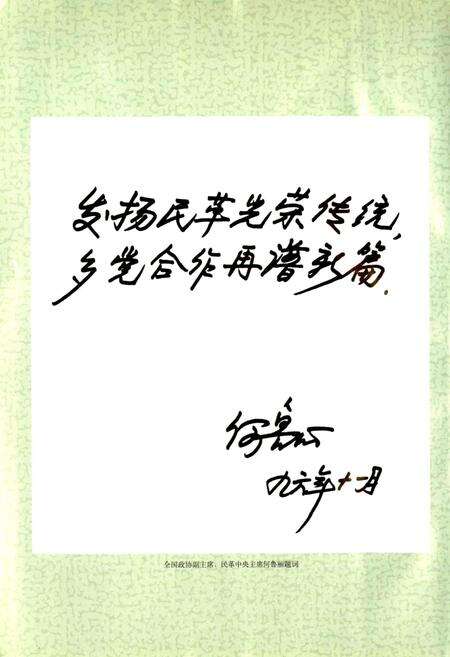 发扬民革光荣传统,
多党合作再谱新篇.
何鲁丽
九六年十一月
全国政协副主席、民革中央主席何鲁丽题词